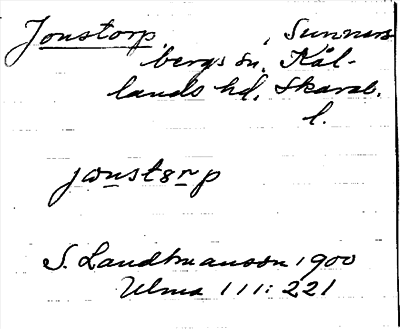 Jonstorp, Sunners
bergs sn. Kål-
lands hd. Skarab.
l.
jωnst8rp
S. Landtmanson 1900
Ulma 111:221